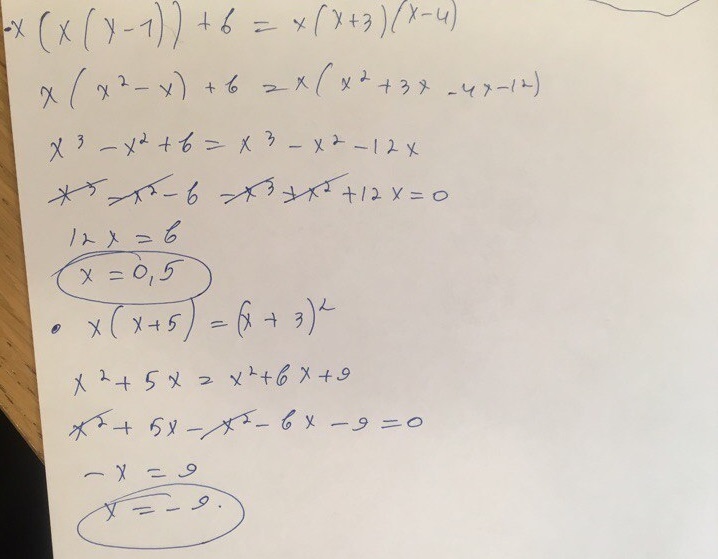 • x(x(x-1))+6 = x(x+3)(x-4)
x(x²-x)+6 = x(x²+3x-4x-12)
x³-x²+6 = x³-x²-12x
x³-x²-6-x³+x²+12x=0
12x=6
x=0,5
• x(x+5)=(x+3)²
x²+5x = x²+6x+9
x²+5x-x²-6x-9=0
-x=9
x=-9.